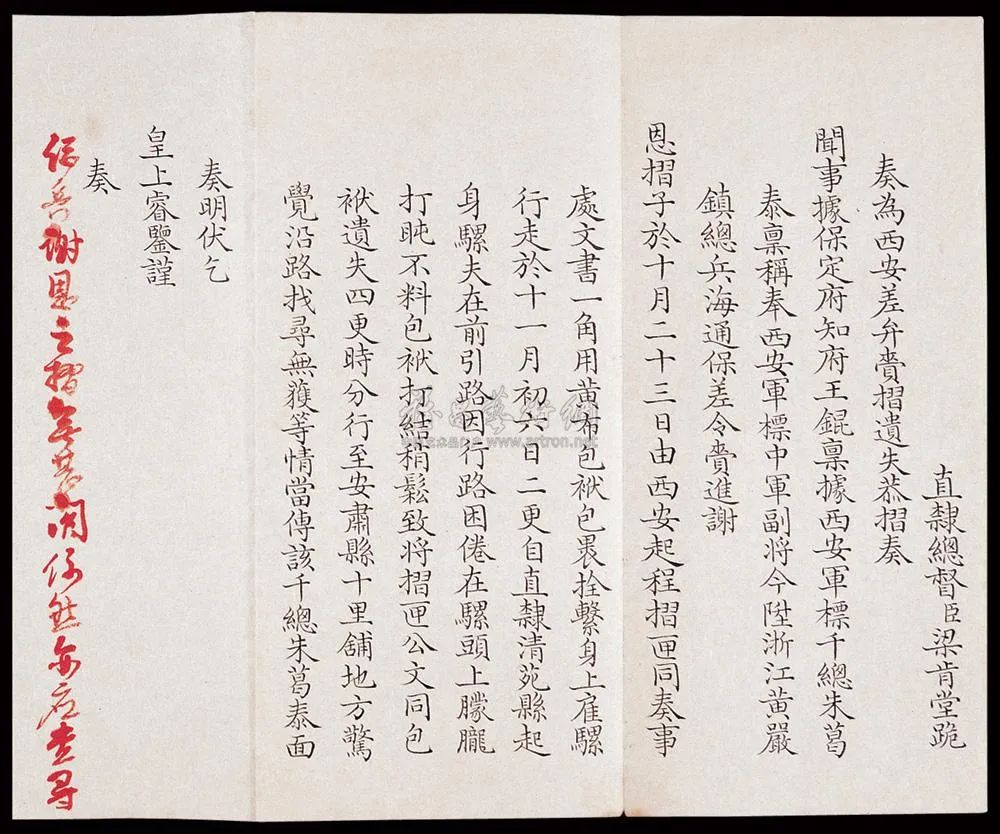 直隸總督臣梁肯堂跪
奏為西安差弁賫摺遺失恭摺奏
聞事據保定府知府王錕禀據西安軍標千總朱葛
泰禀稱奉西安軍標中軍副將今陞浙江黃巖
鎮總兵海通保差令賫進謝
恩摺子於十月二十三日由西安起程摺匣同奏事
處文書一角用黄布包袱包裹拴繫身上雇騾
行走於十一月初六日二更自直隸清苑縣起
身騾夫在前引路因行路困倦在騾頭上朦朧
打盹不料包袱打結稍鬆致將摺匣公文同包
袱遺失四更時分行至安肅縣十里舖地方驚
覺沿路找尋無獲等情當傳該千總朱葛泰面
奏明伏乞
皇上睿鑒謹
奏
總兵謝恩之摺無甚関係然亦應查尋
www.artron.net